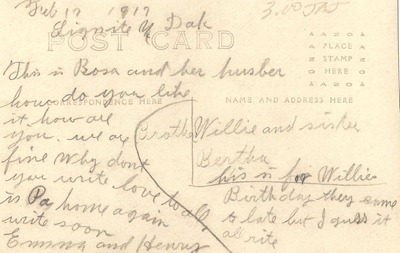 Feb 17 1917
3.00 
Lignite N Dak
POST CARD
AAZOA
PLACE
STAMP
HERE
AAZOA
This is Rosa and her husber
CORRESPONDENCE HERE
NAME AND ADDRESS HERE
how do you like
it how are
you. we are
fine Why dont
you write love to all,
is Pa home again
write soon
Emma and Henry
Brother Willie and sister
Bertha
this is for Willies
Birthday they came
to late but I guss it
all rite